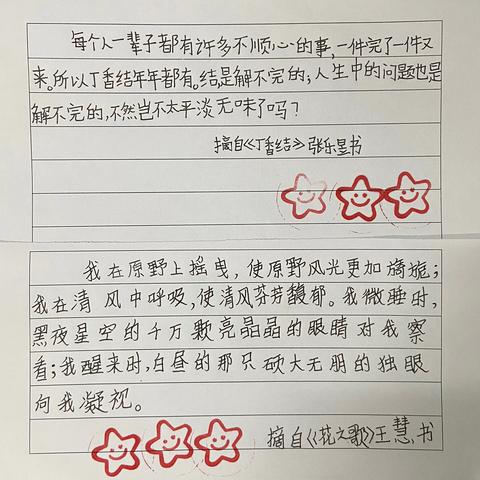 每个人一辈子都有许多不顺心的事,一件完了一件又
来。所以丁香结年年都有。结是解不完的;人生中的问题也是
解不完的,不然岂不太平淡无味了吗?
摘自《丁香结》张乐昱书
我在原野上摇曳,使原野风光更加旖旎;
我在清风中呼吸,使清风芬芳馥郁。我微睡时,
黑夜星空的千万颗亮晶晶的眼睛对我察
看;我醒来时,白昼的那只硕大无朋的独眼
向我凝视。
摘自《花之歌》王慧书